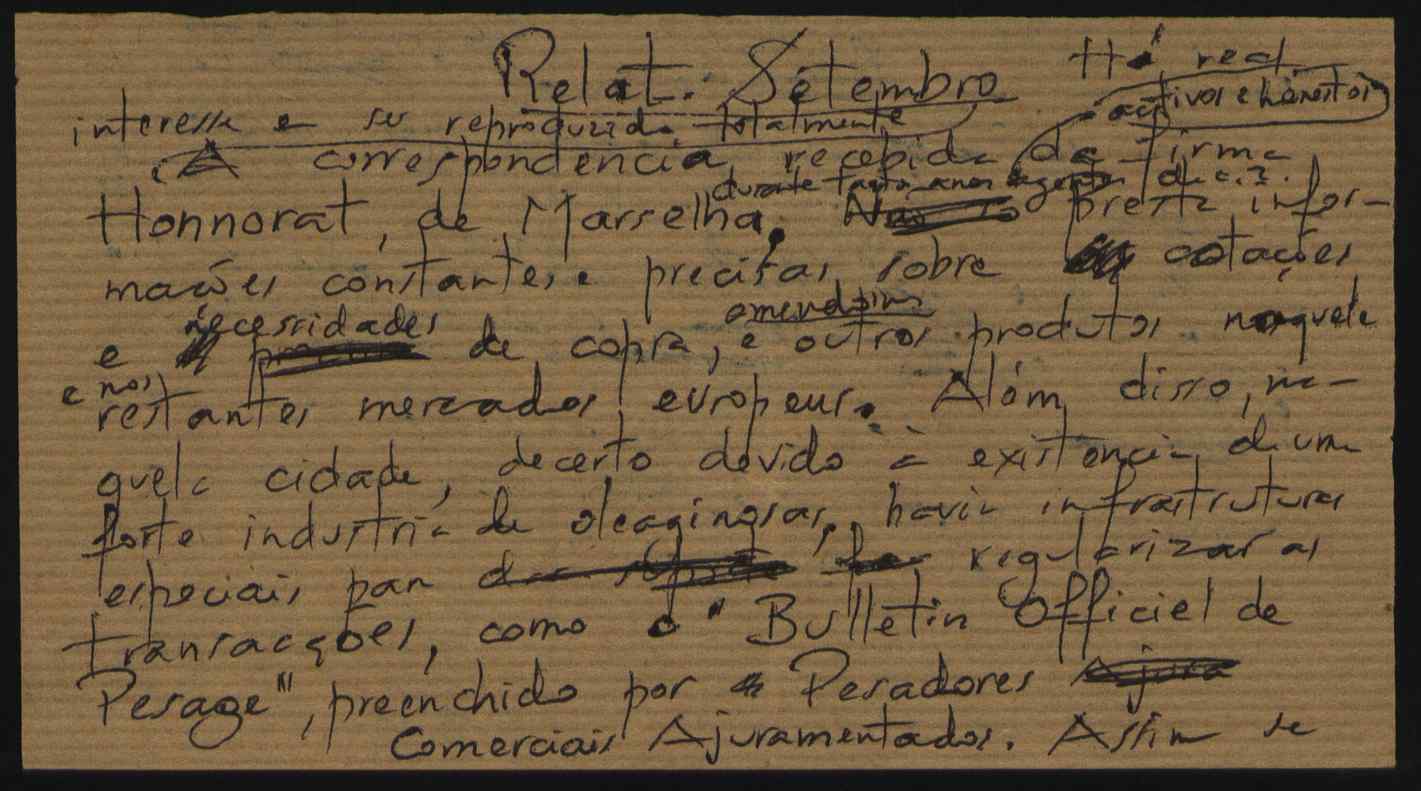 Relat. Setembro
Há real
interesse e ser reproduzida totalmente
activos e honestos
A correspondencia recebida da firma
durante tantos anos agentes da c.I.
Honnorat, de Marselha. presta infor-
mações constantes e precisas sobre cotações
necessidades
amendoim
e de copra, e outros produtos naquele
e nos
restantes mercados europeus. Além disso, na-
quela cidade, decerto devido à existencia duma
forte industria de oleaginosas, havia infrastruturas
especiais para regularizar as
transacções, como o "Bulletin Officiel de
Pesage", preenchido por Pesadores
Comerciais Ajuramentados. Assim se